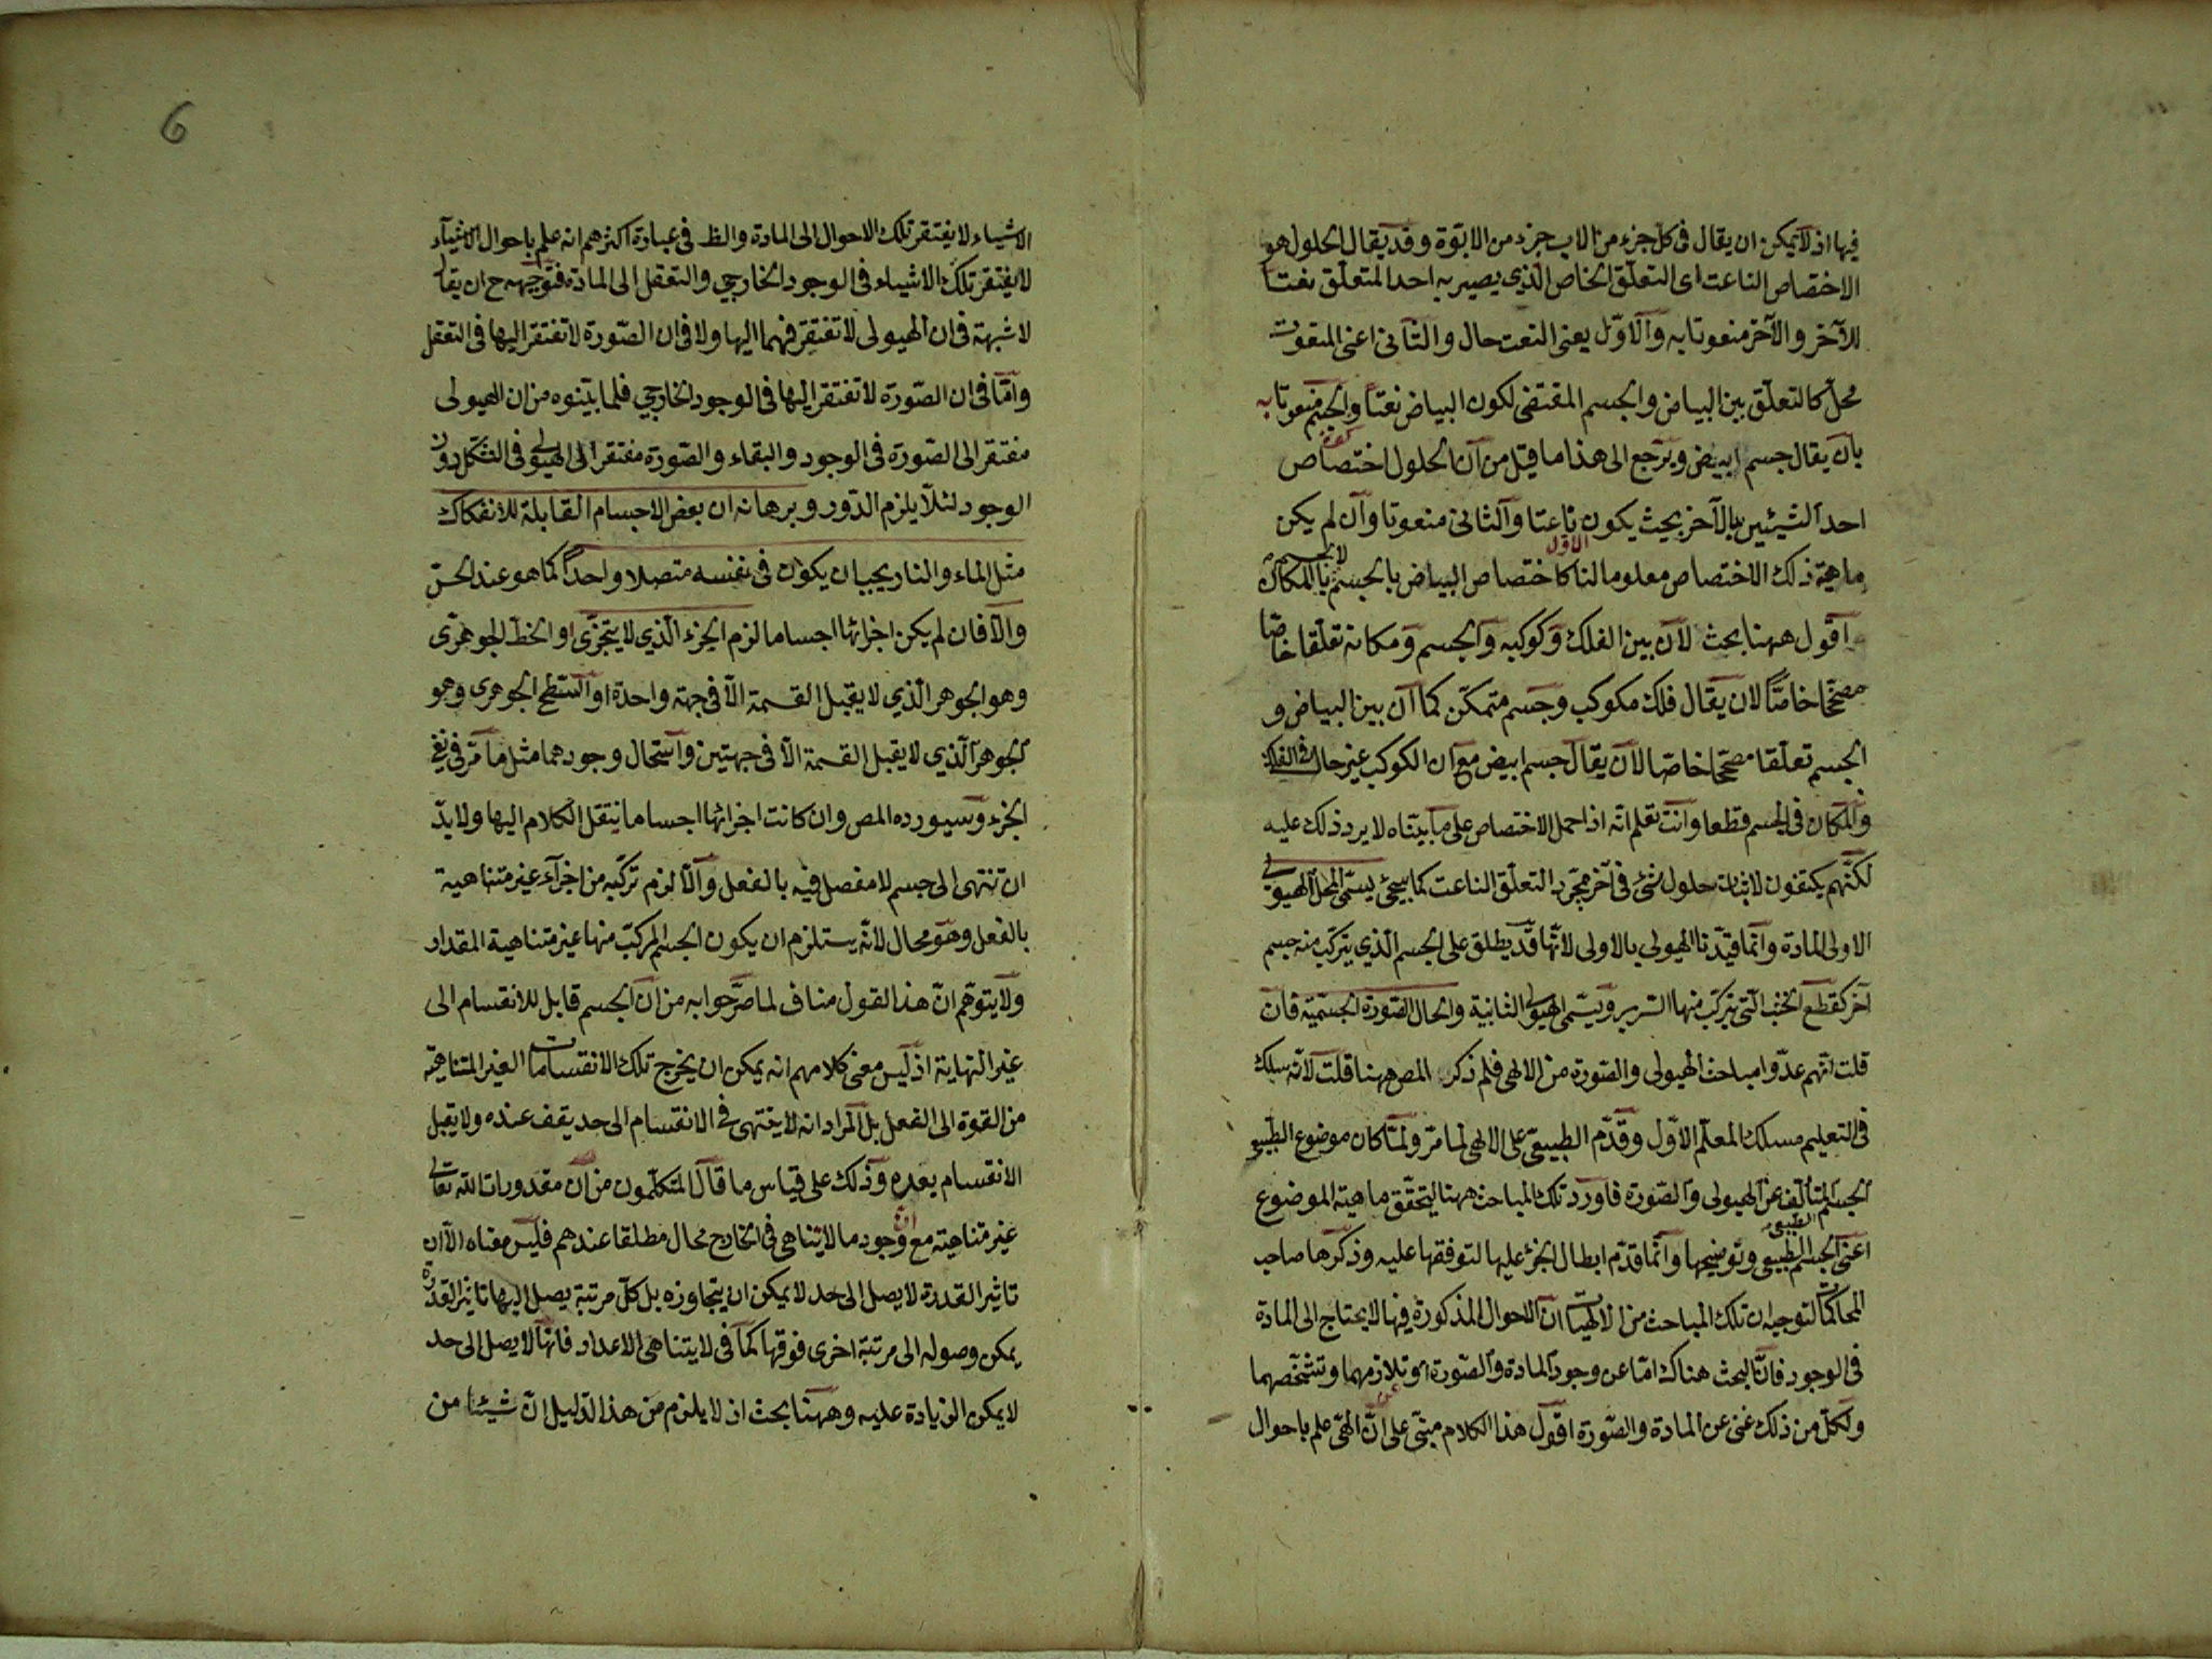 فيها اذ لا يمكن ان يقال فى كل جزء من الاب جزء من الابوة وقد يقال الحلول هو
الاختصاص الناعت اى التعلق الخاص الذي يصير به احد المتعلق نعتا
للآخر والآخر منعوتا به والاول يعنى النعت حال والثانى اعنى المنعوت
محل كالتعلق بين البياض والجسم المقتضى لكون البياض نعتا والجسم منعوتا به
بان يقال جسم ابيض ويرجع الى هذا ما قيل من ان الحلول اختصاص
احد الشيئين بالآخر بحيث يكون الاول ناعتا والثانى منعوتا وان لم يكن
ماهية ذلك الاختصاص معلومة لنا كاختصاص البياض بالجسم لا الجسم بالمكان
اقول ههنا بحث لان بين الفلك وكوكبه والجسم ومكانه تعلقا خاصا
مصححا خاصا لان يقال فلك مكوكب وجسم متمكن كما ان بين البياض و
الجسم تعلقا مصححا خاصا لان يقال جسم ابيض مع ان الكوكب غير حال فى الفلك
والمكان فى الجسم قطعا وانت تعلم انه اذا حمل الاختصاص على ما بيناه لا يرد ذلك عليه
لكنهم يكتفون لاثبات حلول شئ فى آخر مجرد التعلق الناعت كما سيجئ يسمى المحل الهيولى
الاولى المادة وانما قيدنا الهيولى بالاولى لانها قد يطلق على الجسم الذي يتركب منه جسم
آخر كقطع الخشب التى يتركب منها السرير ويسمى الهيولى الثانية والحال الصورة الجسمية فان
قلت انهم عدوا مباحث الهيولى والصورة من الالهى فلم ذكر المص ههنا قلت لانه سلك
فى التعليم مسلك المعلم الاول وقدم الطبيعى على الالهى لما مر ولما كان موضوع الطبيعى
الجسم المتألف عن الهيولى والصورة فاورد تلك المباحث ههنا لتحقق ماهية الموضوع
اعنى الجسم الطبيعى الطبيعى وتوضيحها وانما قدم ابطال الجزء عليها لتوفقها عليه وذكرها صاحب
المحاكمات لتوجيه ان تلك المباحث من الالهيات ان الاحوال المذكورة فيها لا يحتاج الى المادة
فى الوجود فان البحث هناك اما عن وجود المادة والصورة او تلازمهما وتشخصهما
ولكل من ذلك غنى عن المادة والصورة اقول هذا الكلام مبنى على ان الالهى علم باحوال
6
الاشياء لا يفتقر تلك الاحوال الى المادة والظ فى عبارة اكثرهم انه علم باحوال الاشياء
لا يفتقر تلك الاشياء فى الوجود الخارجي والتعقل الى المادة فتوجيهه ح ان يقال
لا شبهة فى ان الهيولى لا تفتقر فيهما اليها ولا فى ان الصورة لا تفتقر اليها فى التعقل
واما فى ان الصورة لا تفتقر اليها فى الوجود الخارجي فلما بينوه من ان الهيولى
مفتقر الى الصورة فى الوجود والبقاء والصورة مفتقر الى الهيولى فى التشكل دون
الوجود لئلا يلزم الدور وبرهانه ان بعض الاجسام القابلة للانفكاك
مثل الماء والنار يجب ان يكون فى نفسه متصلا واحدا كما هو عند الحس
والا فان لم يكن اجزائها اجساما لزم الجزء الذي لا يتجزى او الخط الجوهرى
وهو الجوهر الذي لا يقبل القسمة الا فى جهة واحدة او السطح الجوهرى وهو
الجوهر الذي لا يقبل القسمة الا فى جهتين واستحال وجودهما مثل ما مر فى نفى
الجزء وسيورده المص وان كانت اجزائها اجساما ننتقل الكلام اليها ولا بد
ان تنتهى الى جسم لا مفصل فيه بالفعل والا لزم تركبه من اجزاء غير متناهية
بالفعل وهو محال لانه يستلزم ان يكون الجسم المركب منها غير متناهية المقدار
ولا يتوهم ان هذا القول مناف لما صرحوا به من ان الجسم قابل للانقسام الى
غير النهاية اذ ليس معنى كلامهم انه يمكن ان يخرج تلك الانقسامات الغير المتناهية
من القوة الى الفعل بل المراد انه لا ينتهى فى الانقسام الى حد يقف عنده ولا يقبل
الانقسام بعده وذلك على قياس ما قال المتكلمون من ان مقدورات الله تعالى
غير متناهية مع ان وجود ما لا يتناهى فى الخارج محال مطلقا عندهم فليس معناه الا ان
تاثير القدرة لا يصل الى حد لا يمكن ان يتجاوزه بل كل مرتبة يصل اليها تاثير القدرة
يمكن وصوله الى مرتبة اخرى فوقها كما فى لا يتناهى الاعداد فانها لا يصل الى حد
لا يمكن الزيادة عليه وههنا بحث اذ لا يلزم من هذا الدليل ان شيئا من